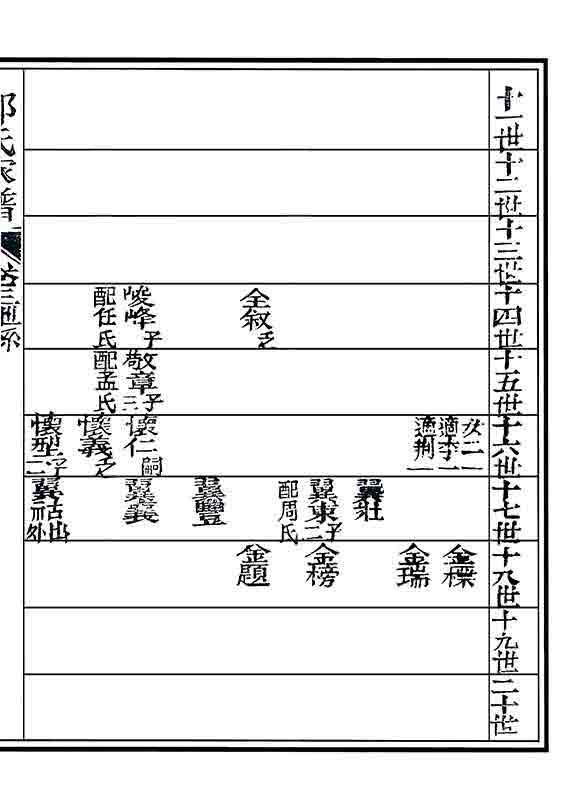 十一世
十二世
十三世
十四世
十五世
十六世
十七世
十八世
十九世
二十世
全叙乏
峻峰子
配任氏
敬章子三
配孟氏
女二一
適李一
適荆一
懷仁嗣
懷義乏
懷型子二
翼壯
翼東子二
配周氏
翼豐
翼義
翼
出外
金標
金瑞
金榜
金題
氏家譜
三
系